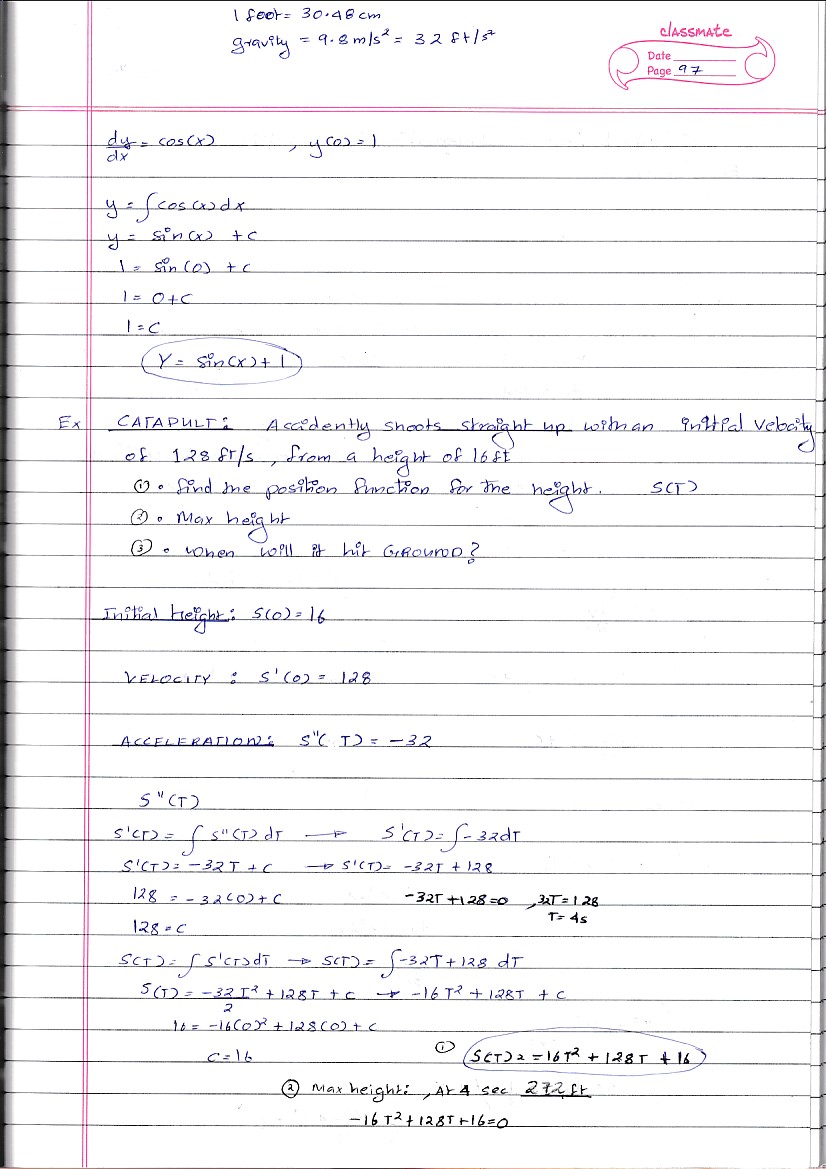 1 foot = 30.48 cm
gravity = 9.8 m/s² = 32 ft/s²
classmate
Date
Page 97
dy/dx = cos(x) , y(0) = 1
y = ∫cos(x)dx
y = sin(x) + c
1 = sin(0) + c
1 = 0+c
1 = c
Y = sin(x) + 1
Ex CATAPULT: Accidently shoots straight up with an initial velocity
of 128 ft/s, from a height of 16ft
① • find the position function for the height. S(T)
② • Max height
③ • when will it hit GROUND?
Initial Height: S(0) = 16
VELOCITY : S'(0) = 128
ACCELERATION: S"(T) = -32
S"(T)
S'(T) = ∫ S"(T) dT → S'(T) = ∫-32dT
S'(T) = -32T + C → S'(T) = -32T + 128
128 = -32(0) + C -32T + 128 = 0 , 32T = 128
T = 4s
128 = C
S(T) = ∫ S'(T)dT → S(T) = ∫-32T+128 dT
S(T) = -32/2 T² + 128T + C → -16T² + 128T + C
16 = -16(0)² + 128(0) + C
C = 16 ① S(T) = -16T² + 128T + 16
② Max height: , At 4 sec 272 ft
-16T² + 128T + 16 = 0